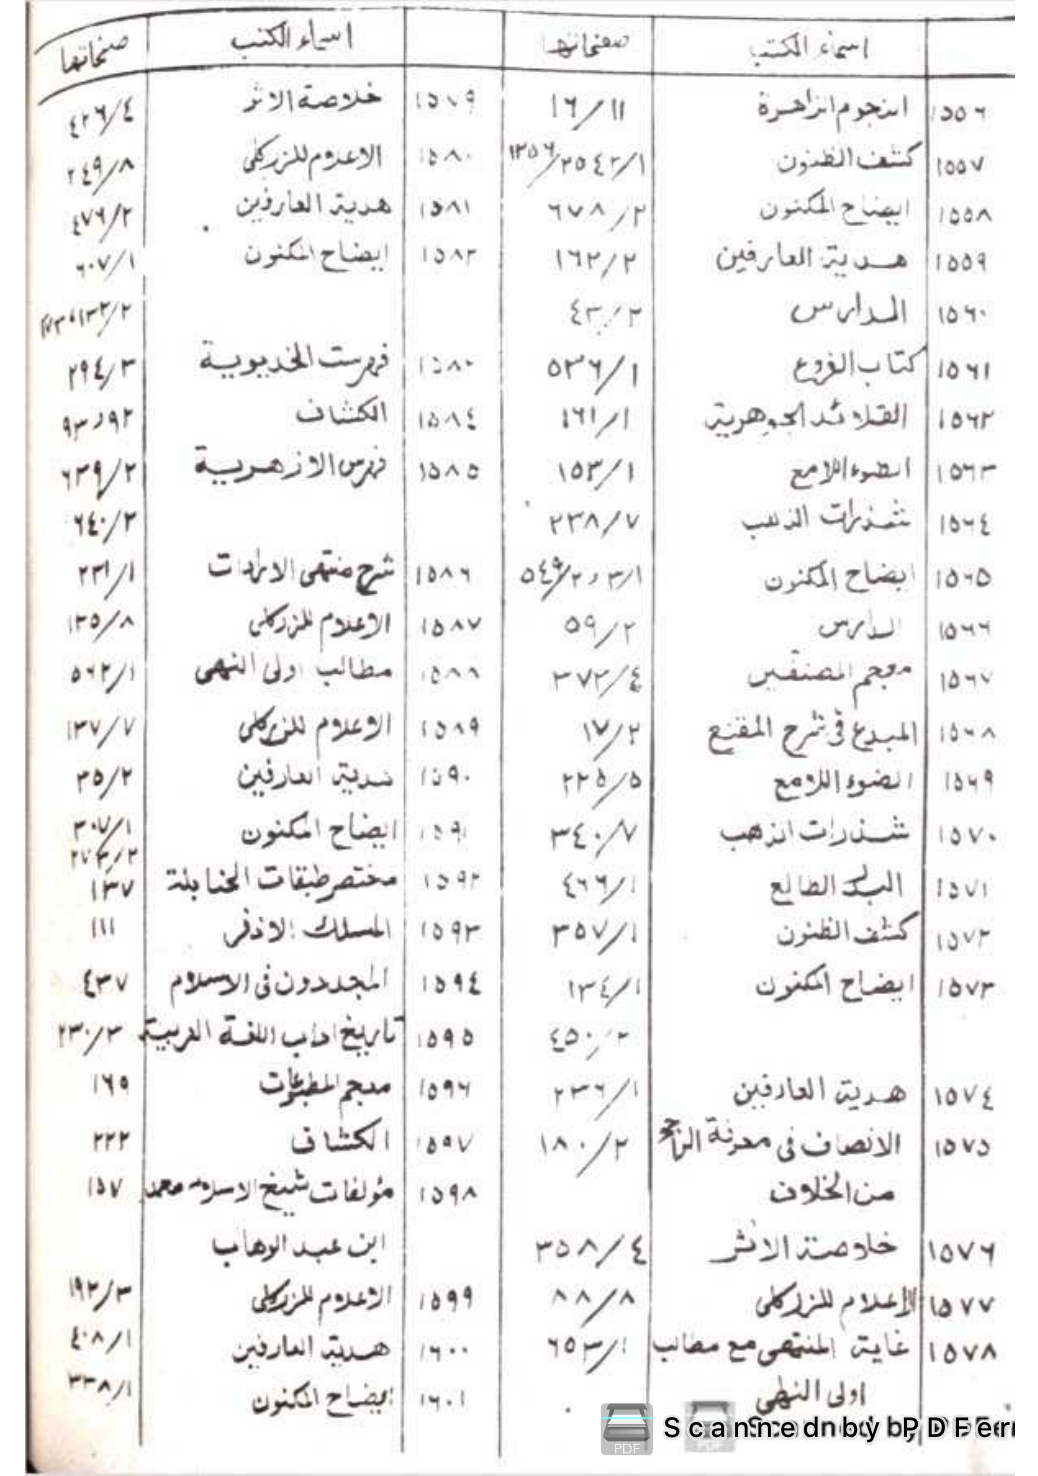 اسماء الكتب صفحاتها
١٥٥٦ النجوم الزاهرة ١٦/١١
١٥٥٧ كشف الظنون ١٣٥٦/٢٥٤٢/١
١٥٥٨ ايضاح المكنون ٦٧٨/٢
١٥٥٩ هدية العارفين ١٦٢/٢
١٥٦٠ الدارس ٤٣/٢
١٥٦١ كتاب الفروع ٥٣٦/١
١٥٦٢ القلائد الجوهرية ١٦١/١
١٥٦٣ الضوء اللامع ١٥٣/١
١٥٦٤ شذرات الذهب ٢٣٨/٧
١٥٦٥ ايضاح المكنون ٣/١ و٥٤٩/٢
١٥٦٦ الدارس ٥٩/٢
١٥٦٧ معجم المصنفين ٣٧٢/٤
١٥٦٨ المبدع في شرح المقنع ١٧/٢
١٥٦٩ الضوء اللامع ٢٢٥/٥
١٥٧٠ شذرات الذهب ٣٤٠/٧
١٥٧١ البدر الطالع ٤٦٦/١
١٥٧٢ كشف الظنون ٣٥٧/١
١٥٧٣ ايضاح المكنون ١٣٤/١
٤٥٠/٢
١٥٧٤ هدية العارفين ٢٣٦/١
١٥٧٥ الانصاف في معرفة الراجح ١٨٠/٢
من الخلاف
١٥٧٦ خلاصة الاثر ٣٥٨/٤
١٥٧٧ الاعلام للزركلى ٨٨/٨
١٥٧٨ غاية المنتهى مع مطالب ٦٥٣/١
اولى النهى
اسماء الكتب صفحاتها
١٥٧٩ خلاصة الاثر ٤٢٦/٤
١٥٨٠ الاعلام للزركلى ٢٤٩/٨
١٥٨١ هدية العارفين ٤٧٦/٢
١٥٨٢ ايضاح المكنون ٦٠٧/١
١٣٢/٢
فهرست الخديوية ٢٩٤/٣
١٥٨٤ الكشاف ٩٢ و٩٣
١٥٨٥ فهرس الازهرية ٦٣٩/٢
٦٤٠/٢
١٥٨٦ شرح منتهى الارادات ٢٣١/١
١٥٨٧ الاعلام للزركلى ١٣٥/٨
١٥٨٨ مطالب اولى النهى ٥٦٢/١
١٥٨٩ الاعلام للزركلى ١٣٧/٧
١٥٩٠ هدية العارفين ٣٥/٢
١٥٩١ ايضاح المكنون ٣٠٧/١
٢٧٣/٢
١٥٩٢ مختصر طبقات الحنابلة ١٣٧
١٥٩٣ المسلك الاذفر ١١١
١٥٩٤ المجددون فى الاسلام ٤٣٧
١٥٩٥ تاريخ اداب اللغة العربية ٢٣٠/٣
١٥٩٦ معجم المطبوعات ١٦٩
١٥٩٧ الكشاف ٢٢٢
١٥٩٨ مؤلفات شيخ الاسلام محمد ١٥٧
ابن عبد الوهاب
١٥٩٩ الاعلام للزركلى ١٩٢/٣
١٦٠٠ هدية العارفين ٤٠٨/١
١٦٠١ ايضاح المكنون ٣٣٨/١
Scanned by PDF